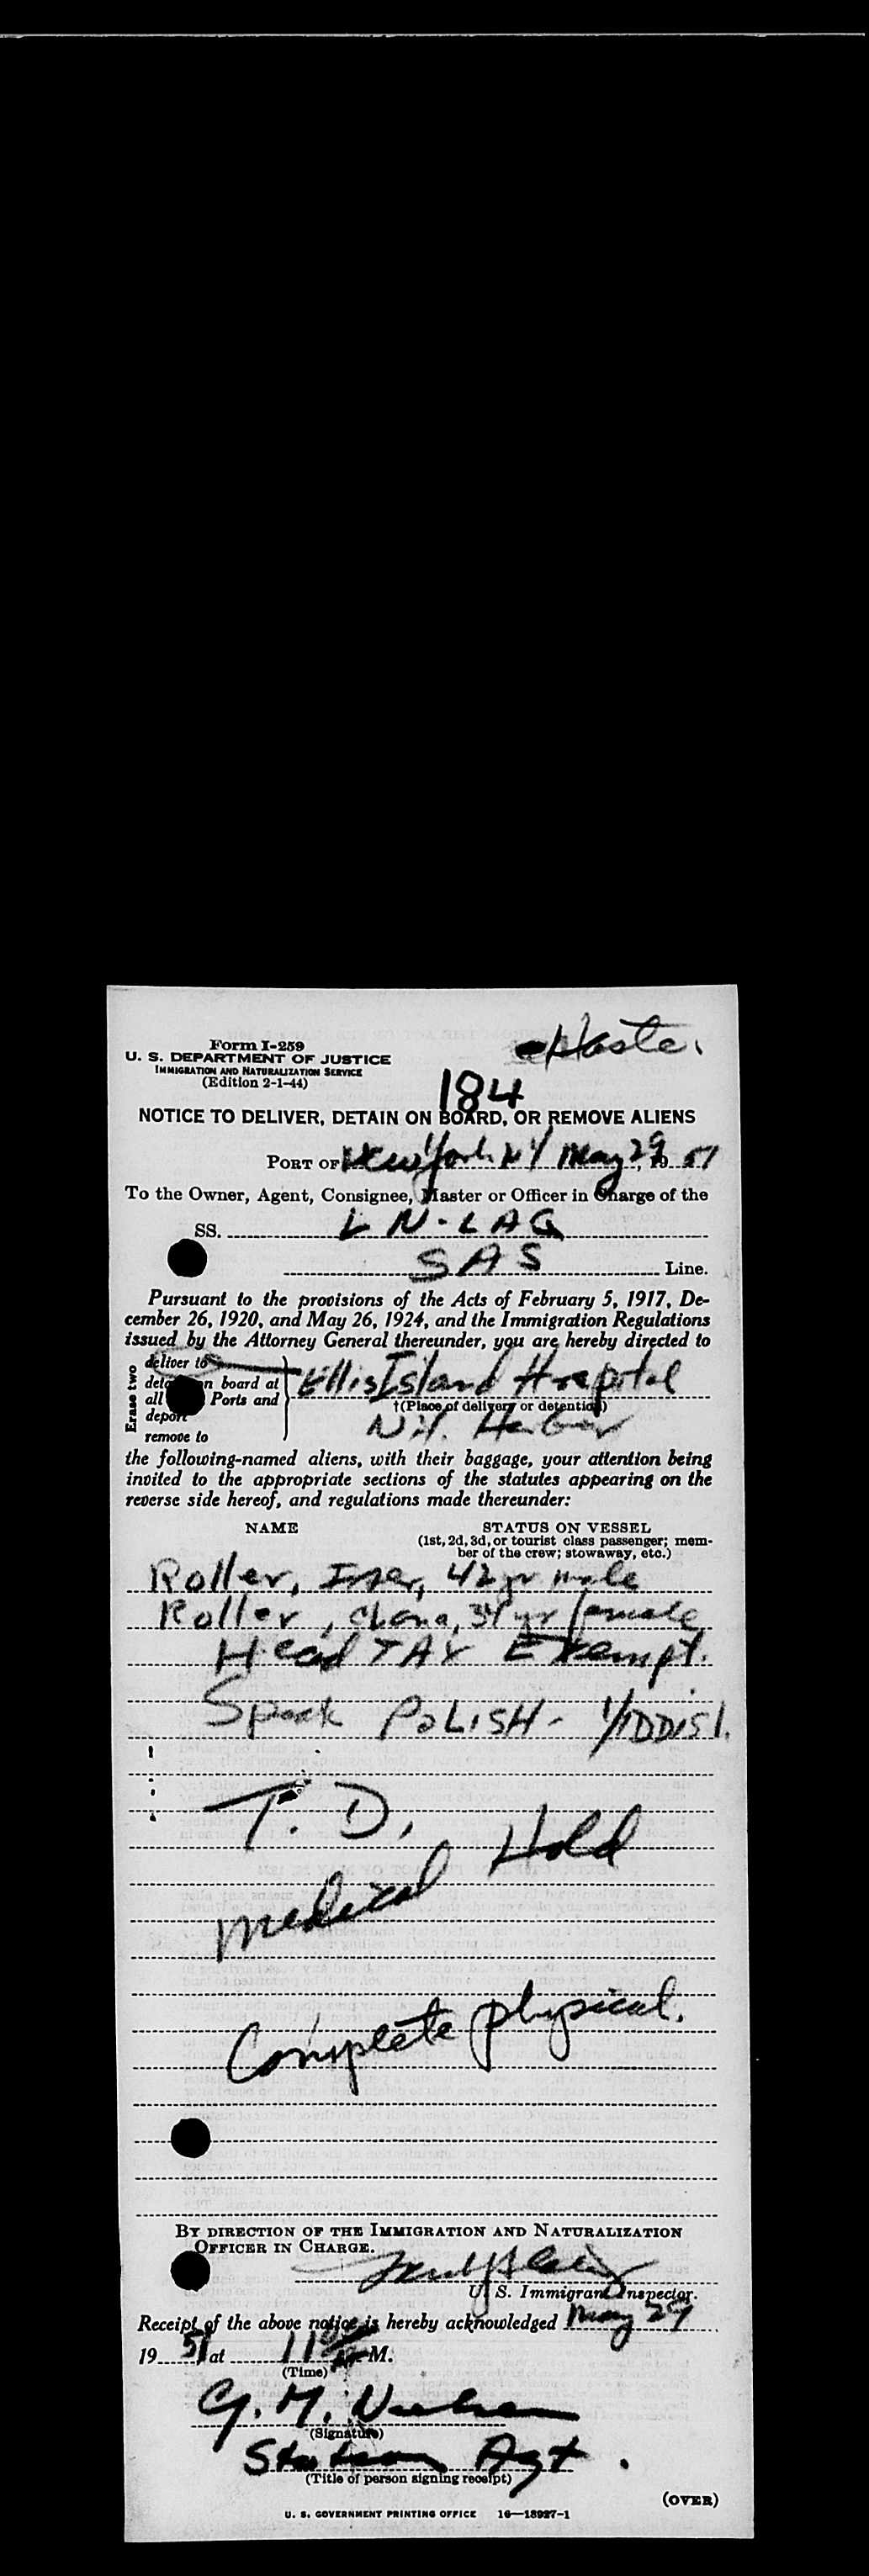 Form I-259
U. S. DEPARTMENT OF JUSTICE
IMMIGRATION AND NATURALIZATION SERVICE
(Edition 2-1-44)
184
NOTICE TO DELIVER, DETAIN ON BOARD, OR REMOVE ALIENS
PORT OF New York NY May 29, 1951
To the Owner, Agent, Consignee, Master or Officer in Charge of the
SS. LN-LAG
SAS Line.
Pursuant to the provisions of the Acts of February 5, 1917, De-
cember 26, 1920, and May 26, 1924, and the Immigration Regulations
issued by the Attorney General thereunder, you are hereby directed to
Erase two
deliver to
board at
all Ports and
deport
remove to
Ellis Island Hospital
†(Place of delivery or detention)
N.Y. Harbor
the following-named aliens, with their baggage, your attention being
invited to the appropriate sections of the statutes appearing on the
reverse side hereof, and regulations made thereunder:
NAME STATUS ON VESSEL
(1st, 2d, 3d, or tourist class passenger; mem-
ber of the crew; stowaway, etc.)
Roller, 42 yr male
Roller, Chana, 34 yr female
Head TAX Exempt.
Speak POLISH - YIDDISH.
T. D.
Medical Hold
Complete physical.
BY DIRECTION OF THE IMMIGRATION AND NATURALIZATION
OFFICER IN CHARGE.
U. S. Immigrant Inspector.
Receipt of the above notice is hereby acknowledged May 29
1951 at 11 M.
(Time)
G. M.
(Signature)
Station Agt.
(Title of person signing receipt)
(OVER)
U. S. GOVERNMENT PRINTING OFFICE 16—18927-1